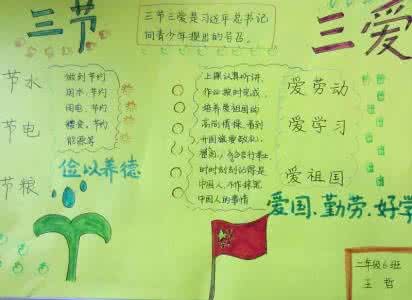 三节
三节三爱是习近平总书记
向青少年提出的号召。
三爱
节水
节电
节粮
做到节约
用水、节约
用电、节约
粮食、节约
能源等
上课认真听讲,
作业按时完成,
培养爱祖国的
高尚情操,看到
时时刻刻记得是
中国人,不作损害
中国人的事情
爱劳动
爱学习
爱祖国
俭以养德
爱国、勤劳、好学
二年级6班
王哲